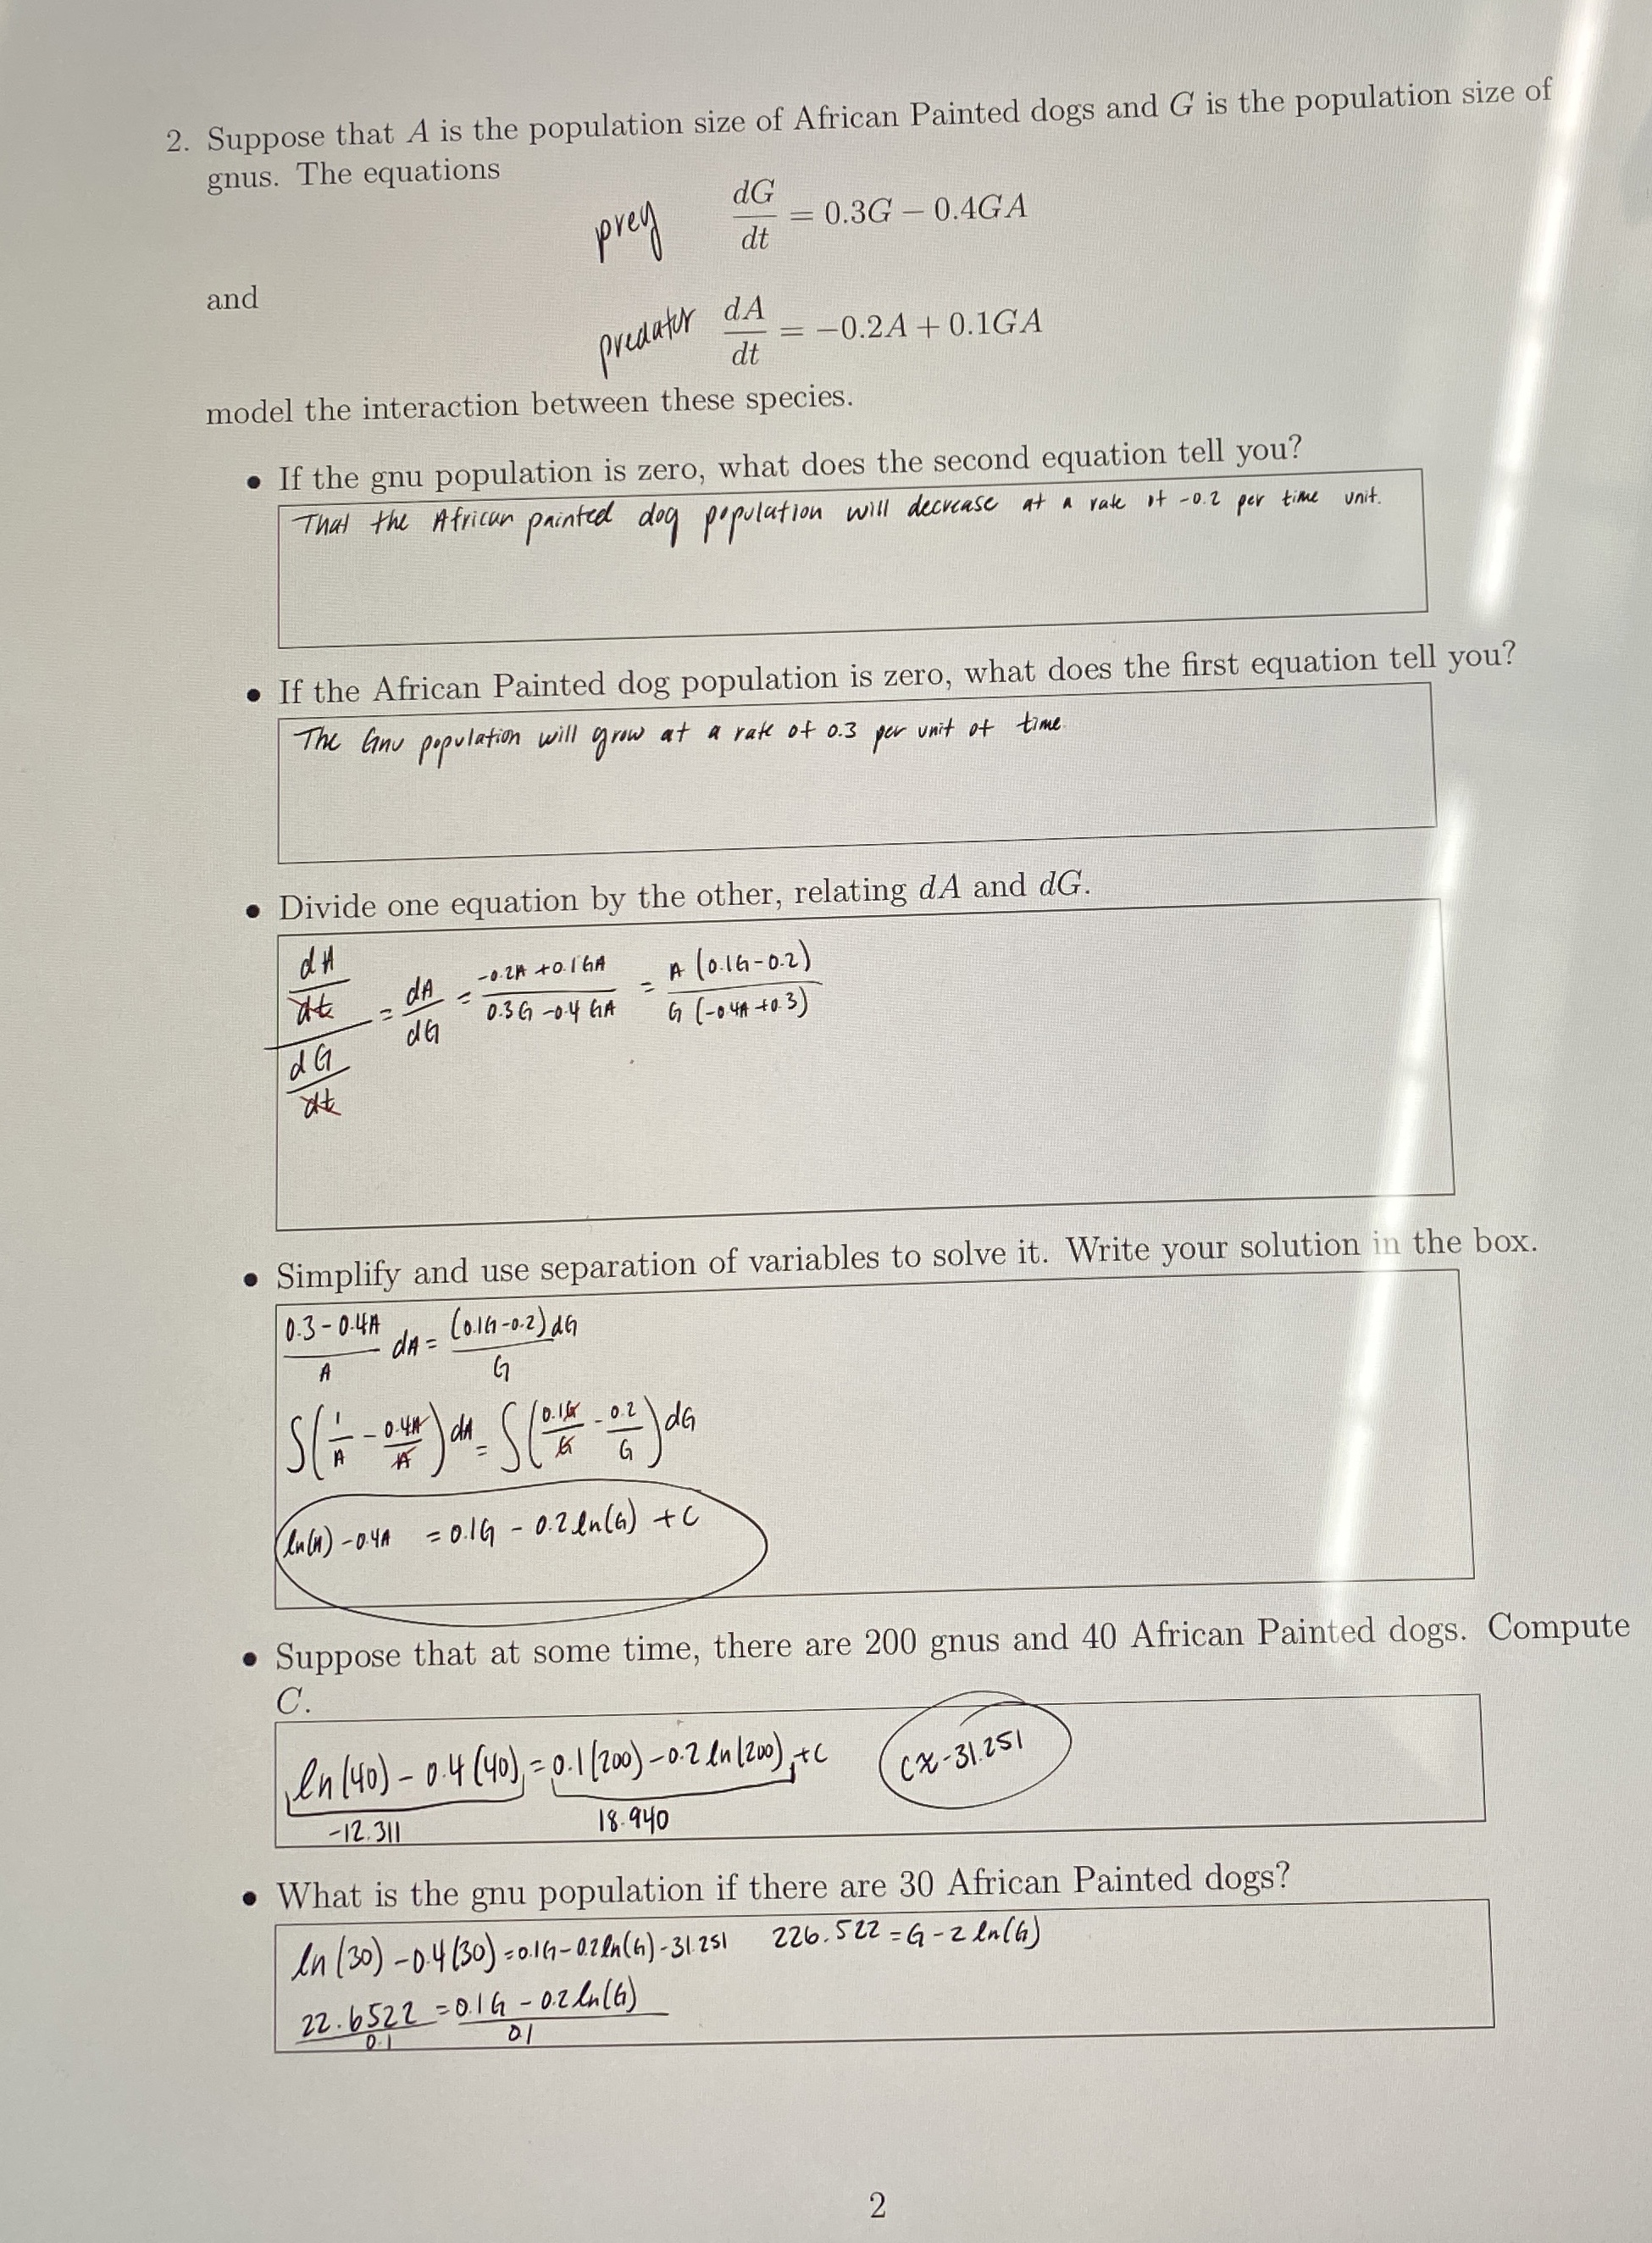 2. Suppose that A is the population size of African Painted dogs and G is the population size of
gnus. The equations
prey dG/dt = 0.3G − 0.4GA
and
predator dA/dt = −0.2A + 0.1GA
model the interaction between these species.
• If the gnu population is zero, what does the second equation tell you?
That the African painted dog population will decrease at a rate of -0.2 per time unit.
• If the African Painted dog population is zero, what does the first equation tell you?
The Gnu population will grow at a rate of 0.3 per unit of time.
• Divide one equation by the other, relating dA and dG.
(dA/dt)/(dG/dt) = dA/dG = (-0.2A + 0.1GA)/(0.3G - 0.4GA) = A(0.1G - 0.2)/G(-0.4A + 0.3)
• Simplify and use separation of variables to solve it. Write your solution in the box.
(0.3 - 0.4A)/A dA = (0.1G - 0.2)dG/G
∫(1/A - 0.4A/A)dA = ∫(0.1G/G - 0.2/G)dG
ln(A) - 0.4A = 0.1G - 0.2ln(G) + C
• Suppose that at some time, there are 200 gnus and 40 African Painted dogs. Compute
C.
ln(40) - 0.4(40) = 0.1(200) - 0.2ln(200) + C C≈-31.251
-12.311 18.940
• What is the gnu population if there are 30 African Painted dogs?
ln(30) - 0.4(30) = 0.1G - 0.2ln(G) - 31.251 226.522 = G - 2ln(G)
22.6522/0.1 = (0.1G - 0.2ln(G))/0.1
2